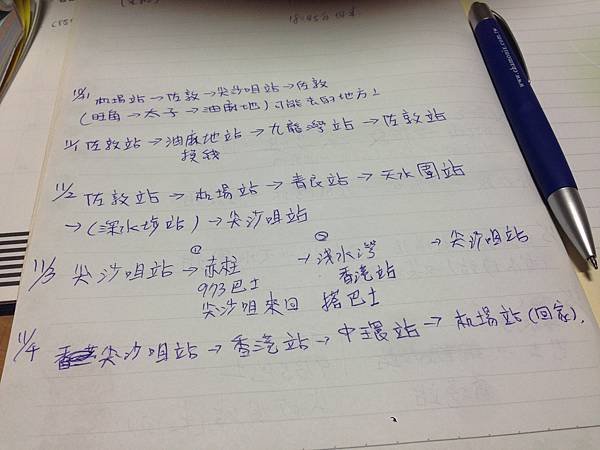 18:45分
10/31 机場站→佐敦→尖沙咀站→佐敦
(旺角→太子→油麻地)可能去的地方
11/1 佐敦站→油麻地站→九龍灣站→佐敦站
換線
11/2 佐敦站→机場站→青衣站→天水圍站
→(深水埗站)→尖沙咀站
① ②
11/3 尖沙咀站→赤柱 →浅水灣 →尖沙咀站
973巴士 香港站
尖沙咀來回 搭巴士
11/4 尖沙咀站→香港站→中環站→机場站(回家).